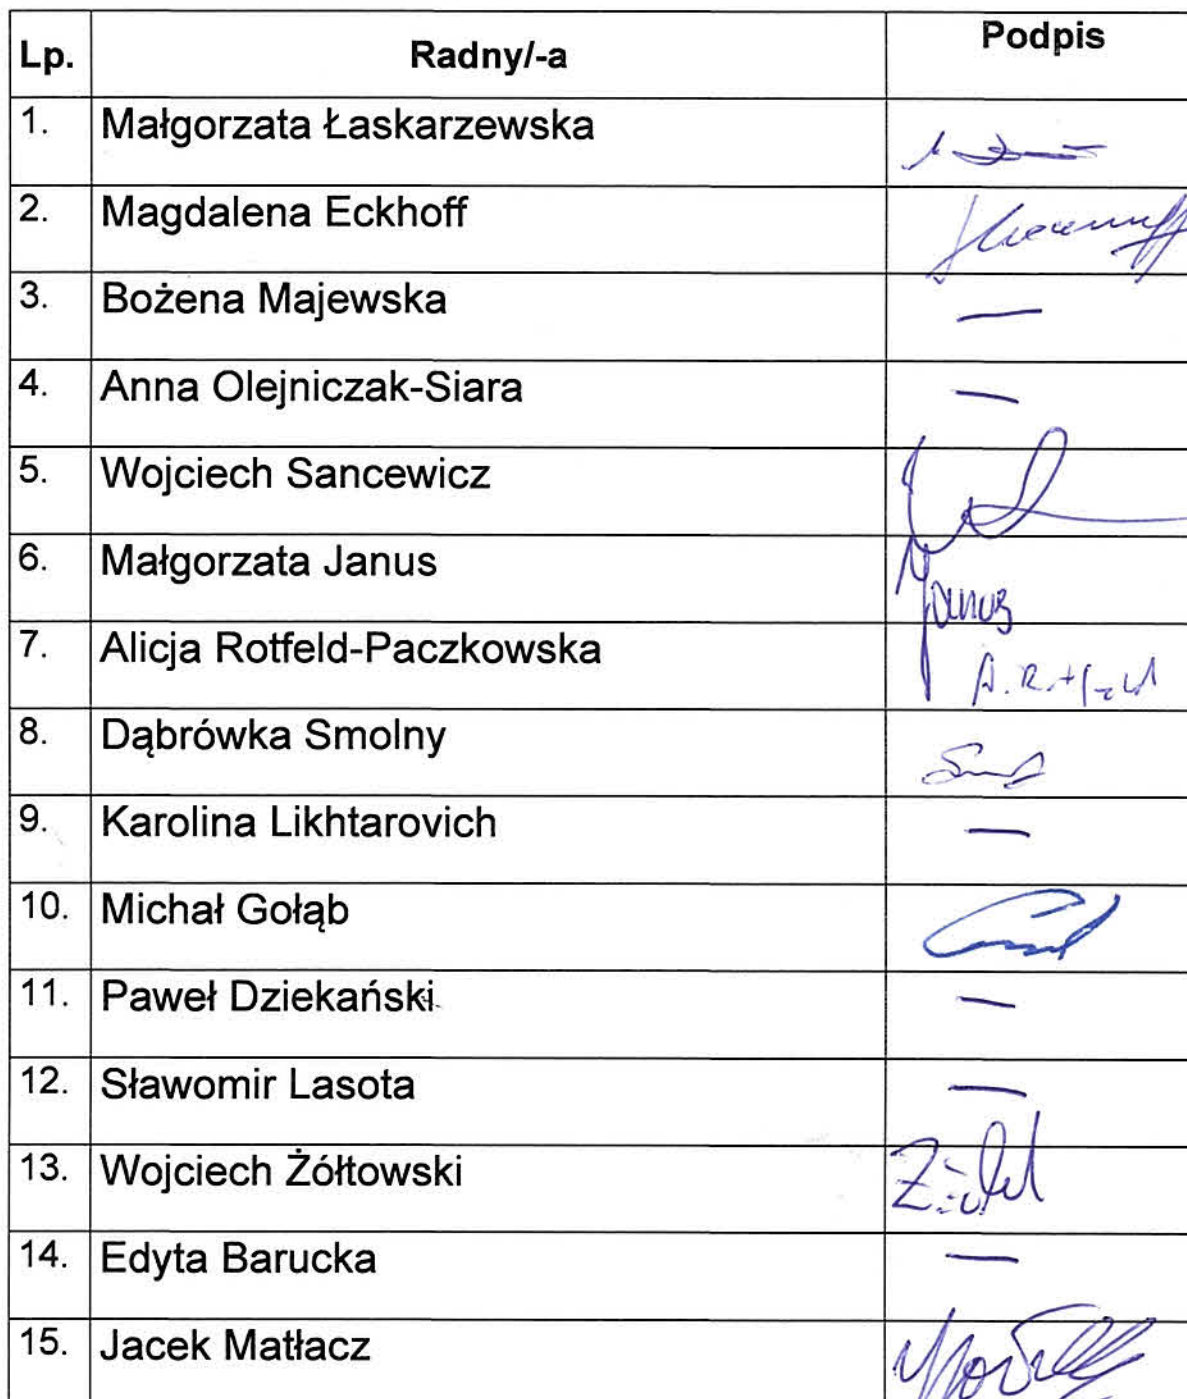 Lp. Radny/-a Podpis
1. Małgorzata Łaskarzewska
2. Magdalena Eckhoff
3. Bożena Majewska —
4. Anna Olejniczak-Siara —
5. Wojciech Sancewicz
6. Małgorzata Janus Janus
7. Alicja Rotfeld-Paczkowska A. Rotfeld
8. Dąbrówka Smolny
9. Karolina Likhtarovich —
10. Michał Gołąb
11. Paweł Dziekański —
12. Sławomir Lasota —
13. Wojciech Żółtowski
14. Edyta Barucka —
15. Jacek Matłacz